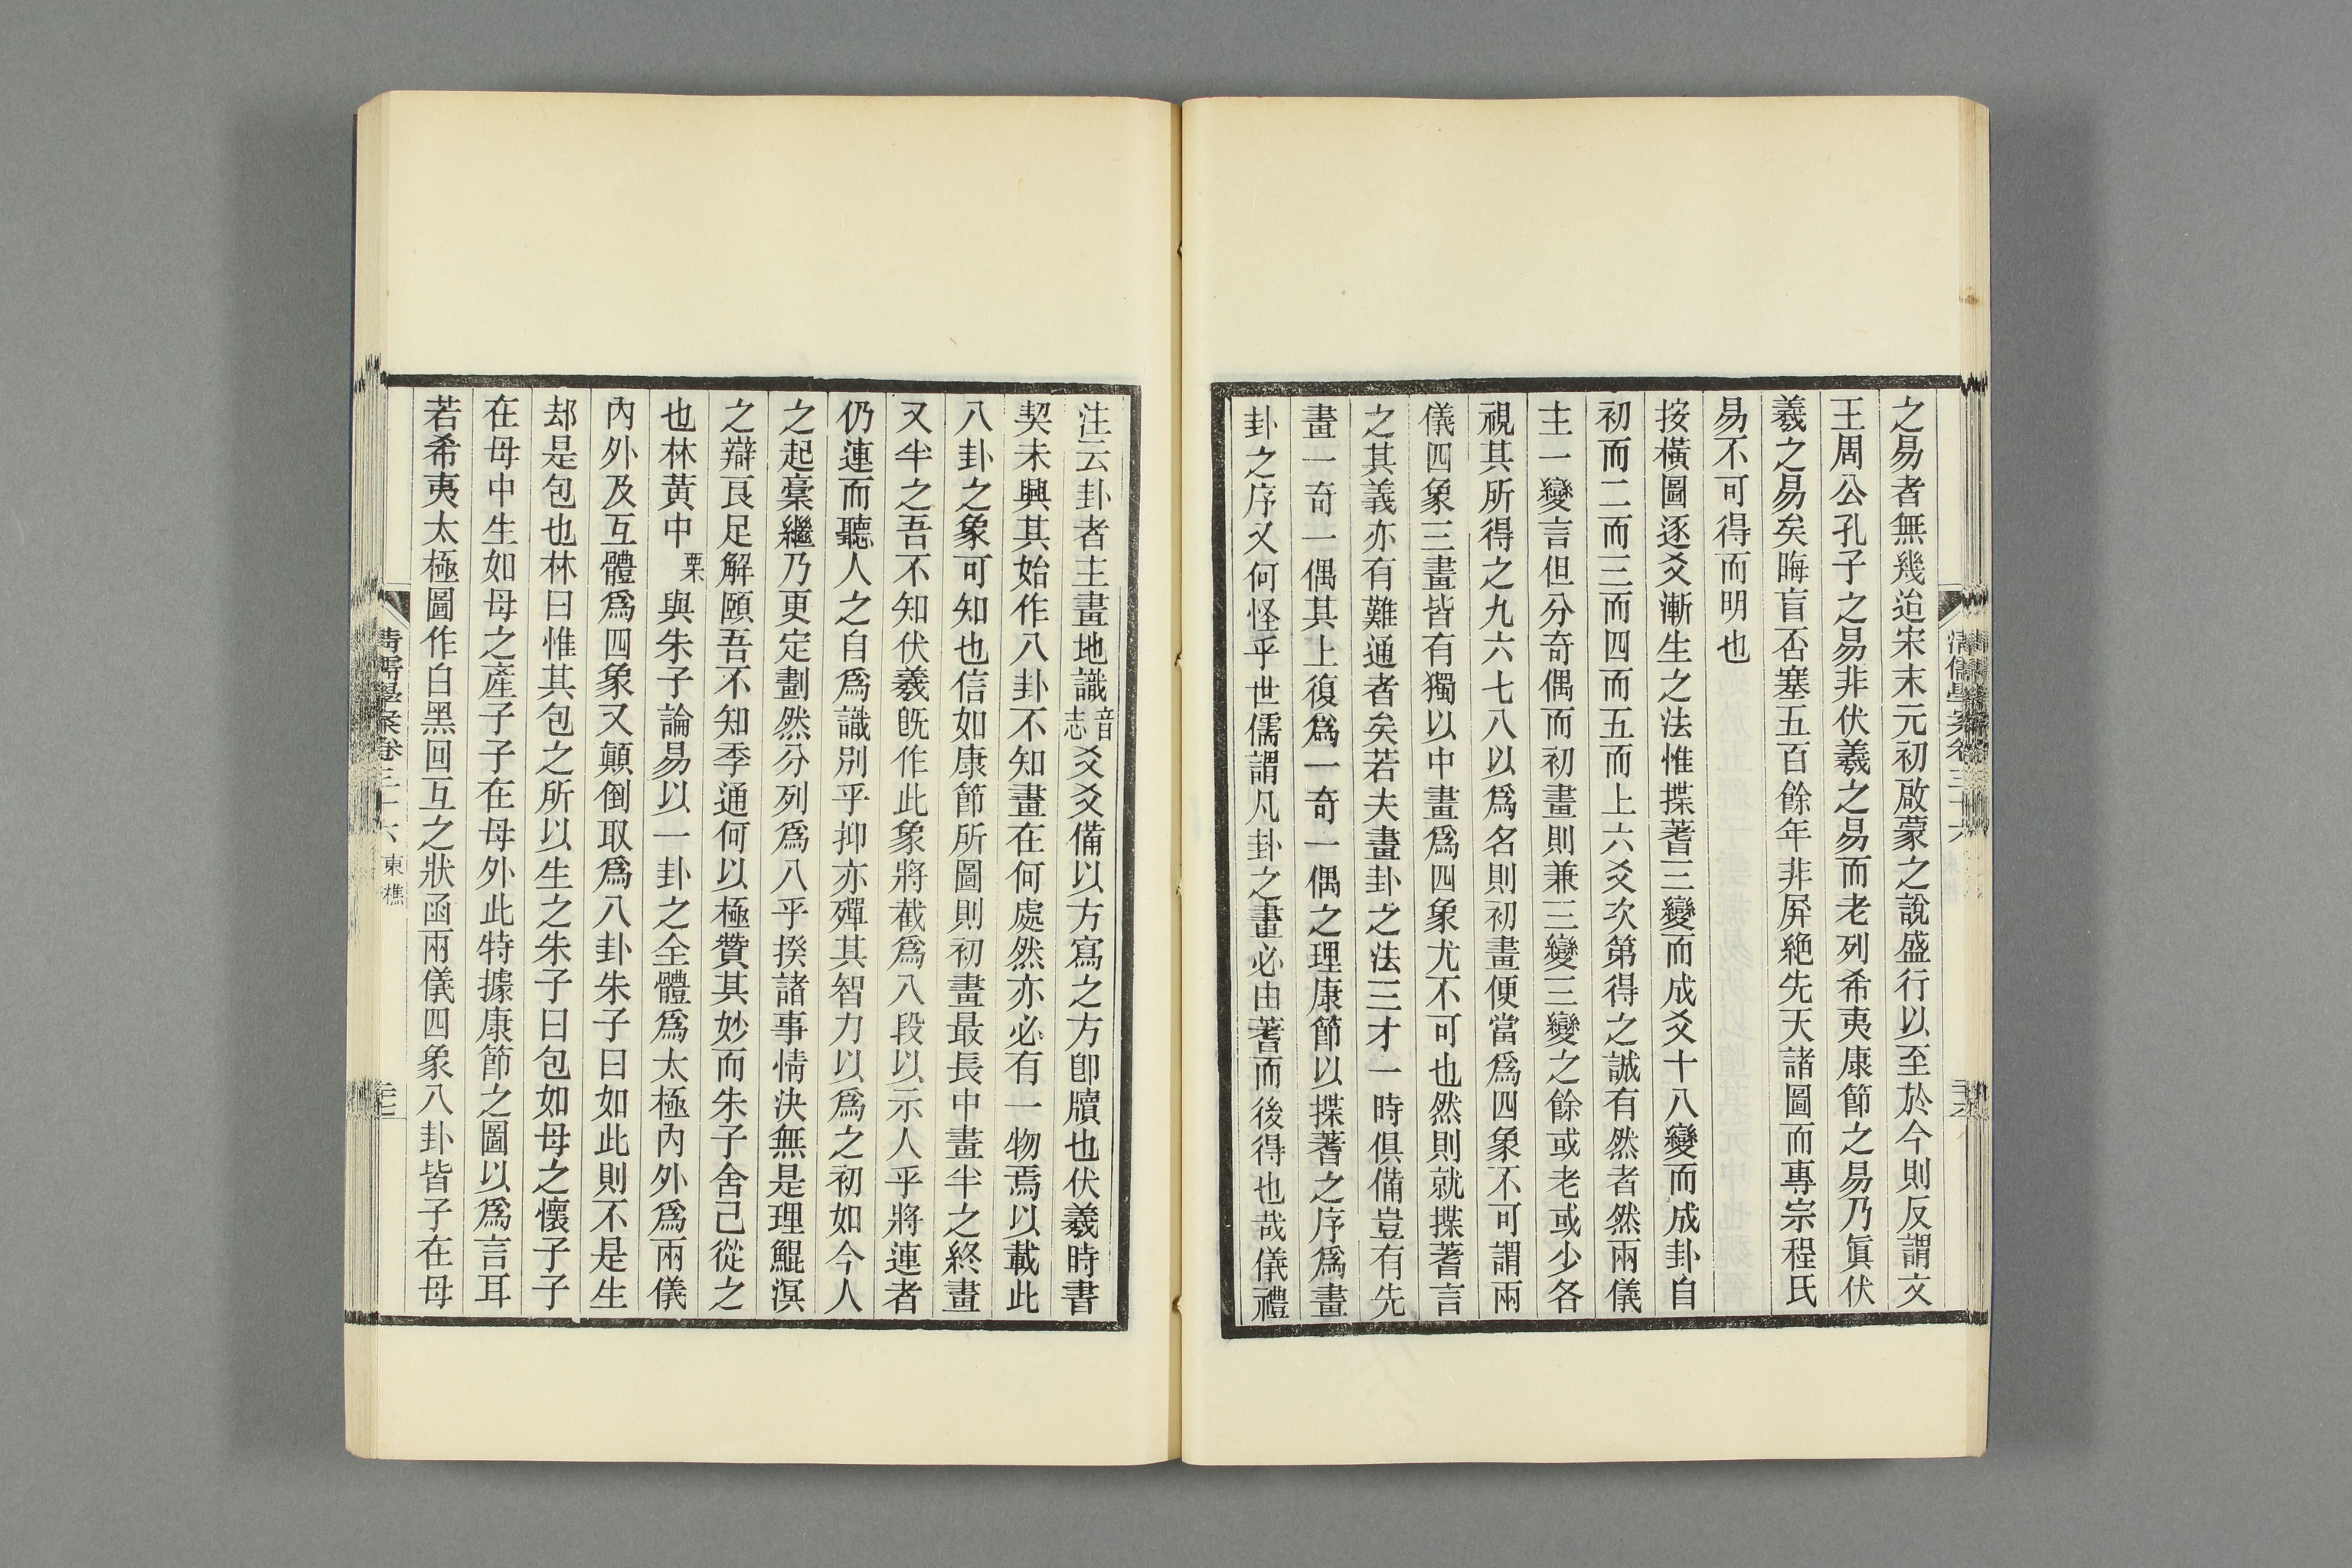 之易者無幾迨宋末元初啟蒙之說盛行以至於今則反謂文
王周公孔子之易非伏羲之易而老列希夷康節之易乃眞伏
羲之易矣晦盲否塞五百餘年非屏絶先天諸圖而專宗程氏
易不可得而明也
按橫圖逐爻漸生之法惟揲蓍三變而成爻十八變而成卦自
初而二而三而四而五而上六爻次第得之誠有然者然兩儀
主一變言但分奇偶而初畫則兼三變三變之餘或老或少各
視其所得之九六七八以爲名則初畫便當爲四象不可謂兩
儀四象三畫皆有獨以中畫爲四象尤不可也然則就揲蓍言
之其義亦有難通者矣若夫畫卦之法三才一時俱備豈有先
畫一奇一偶其上復爲一奇一偶之理康節以揲蓍之序爲畫
卦之序又何怪乎世儒謂凡卦之畫必由蓍而後得也哉儀禮
注云卦者主畫地識音志爻爻備以方寫之方卽牘也伏羲時書
契未興其始作八卦不知畫在何處然亦必有一物焉以載此
八卦之象可知也信如康節所圖則初畫最長中畫半之終畫
又半之吾不知伏羲旣作此象將截爲八段以示人乎將連者
仍連而聽人之自爲識別乎抑亦殫其智力以爲之初如今人
之起稾繼乃更定劃然分列爲八乎揆諸事情決無是理鯤溟
之辯良足解頤吾不知季通何以極贊其妙而朱子舍己從之
也林黃中栗與朱子論易以一卦之全體爲太極內外爲兩儀
內外及互體爲四象又顛倒取爲八卦朱子曰如此則不是生
却是包也林曰惟其包之所以生之朱子曰包如母之懷子子
在母中生如母之產子子在母外此特據康節之圖以爲言耳
若希夷太極圖作白黑回互之狀函兩儀四象八卦皆子在母
清儒學案卷三十六 東樵